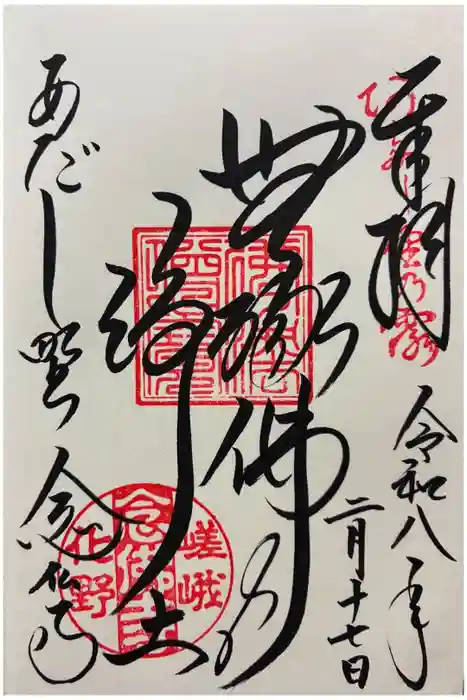 奉拝
令和八年
二月十七日
無縁佛の
浄土
あだし野念仏寺
嵯峨
念佛寺
化野